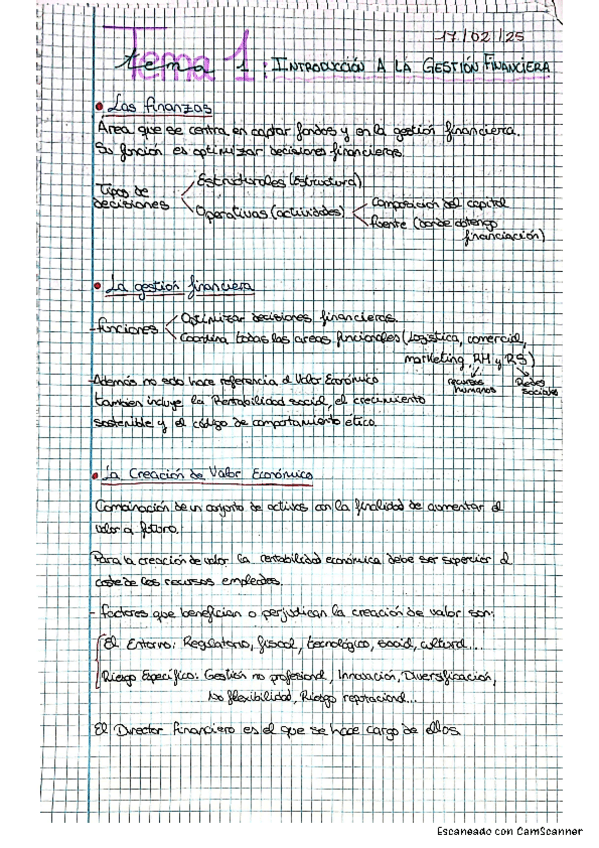 17/02/25
Tema 1: INTRODUCCIÓN A LA GESTIÓN FINANCIERA
• Las finanzas
Área que se centra en captar fondos y en la gestión financiera.
Su función es optimizar decisiones financieras.
Tipos de decisiones
Estructurales (estructura)
Operativas (actividades)
Composición del capital
fuente (donde obtengo financiación)
• La gestión financiera
- funciones
Optimizar decisiones financieras.
Coordina todas las areas funcionales (Logística, comercial,
marketing, RH y RS)
recursos humanos
Redes sociales
- Además no solo hace referencia al Valor Económico
tambien incluye la Rentabilidad social, el crecimiento
sostenible y el código de comportamiento etico.
• La Creación de Valor Económico
Combinación de un conjunto de activos con la finalidad de aumentar el
valor a futuro.
Para la creación de valor la rentabilidad económica debe ser superior al
coste de los recursos empleados.
- factores que benefician o perjudican la creación de valor son:
El Entorno: Regulatorio, fiscal, tecnológico, social, cultural...
Riesgo Específico: Gestión no profesional, Innovación, Diversificación,
No flexibilidad, Riesgo reputacional...
El Director financiero es el que se hace cargo de ellos.
Escaneado con CamScanner